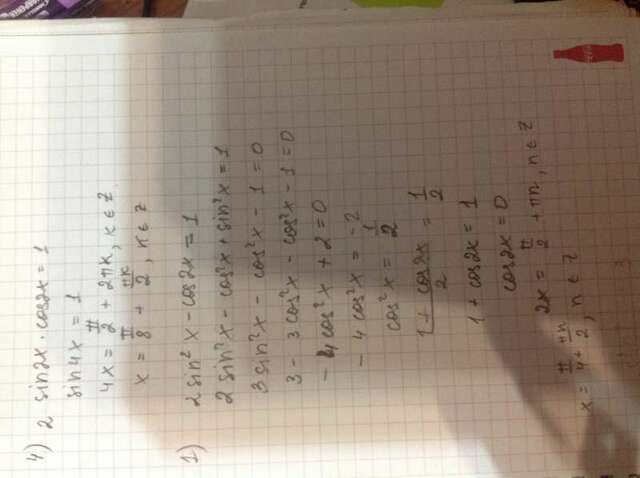 4) 2 sin2x · cos2x = 1
sin4x = 1
4x = π/2 + 2πk, k ∈ Z
x = π/8 + πk/2, k ∈ Z
1) 2 sin²x - cos2x = 1
2 sin²x - cos²x + sin²x = 1
3 sin²x - cos²x - 1 = 0
3 - 3 cos²x - cos²x - 1 = 0
- 4 cos²x + 2 = 0
- 4 cos²x = -2
cos²x = 1/2
1 + cos2x / 2 = 1/2
1 + cos2x = 1
cos2x = 0
2x = π/2 + πn, n ∈ Z
x = π/4 + πn/2, n ∈ Z